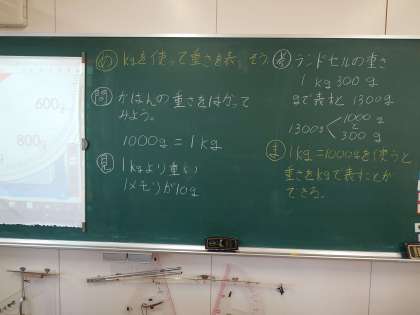 600g
800g
め kgを使って重さを表そう
問 かばんの重さをはかって
みよう。
1000g = 1kg
見 1kgより重い
1メモリが10g
ランドセルの重さ
1kg300g
gで表すと1300g
1300g 1000gと300g
ま 1kg=1000gを使うと
重さをkgで表すことが
できる。